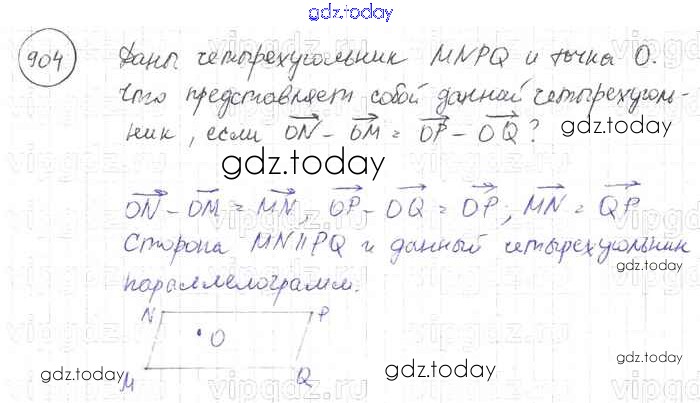 gdz.today
904 Даны четырехугольник MNPQ и точка O.
Что представляет собой данный четырехуголь-
ник, если ON - OM = OP - OQ?
gdz.today
gdz.today
ON - OM = MN, OP - OQ = OP; MN = QP
Сторона MN || PQ и данный четырехугольник
gdz.today
параллелограмм.
N P
O
gdz.today
gdz.today
M Q
gdz.today